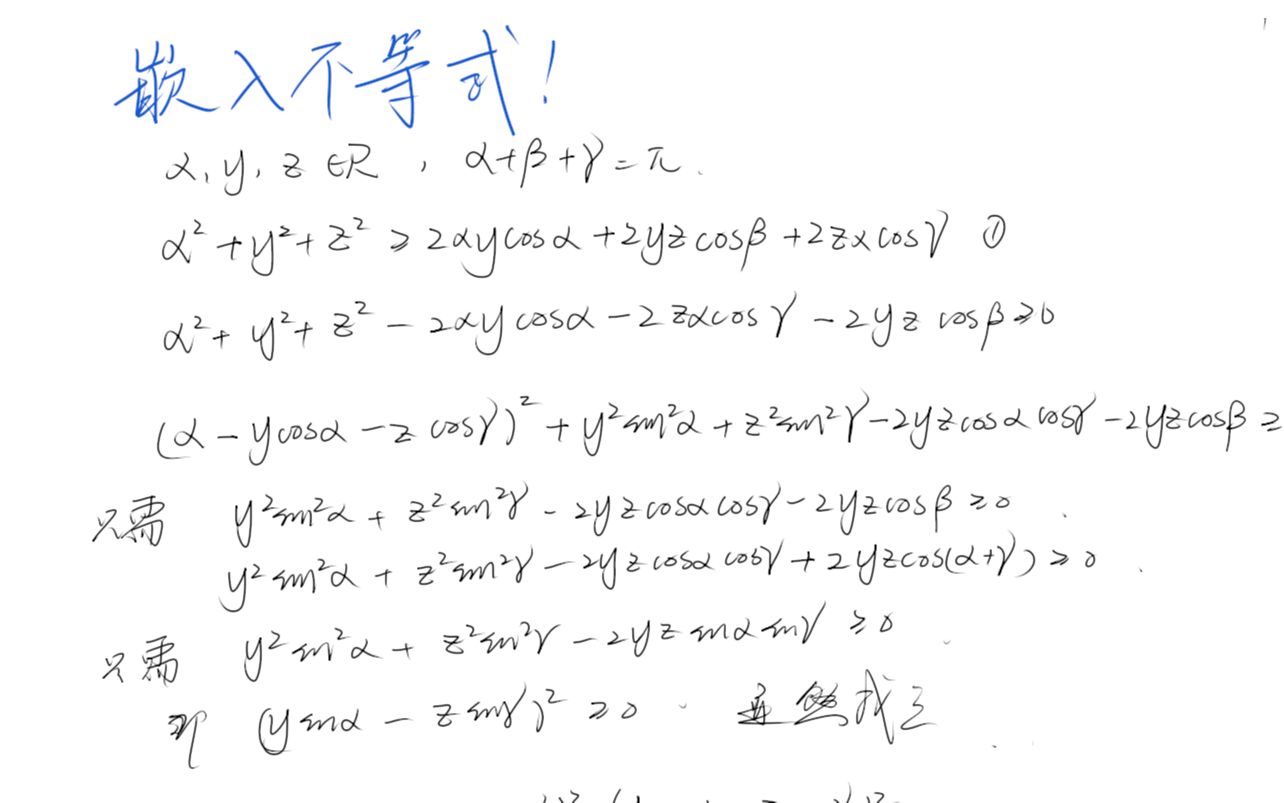 嵌入不等式!
x, y, z ∈R , α+β+γ=π.
x²+y²+z² ≥ 2xycosα+2yzcosβ+2zxcosγ ①
x²+y²+z²-2xycosα-2zxcosγ-2yzcosβ≥0
(x-ycosα-zcosγ)²+y²sin²α+z²sin²γ-2yzcosαcosγ-2yzcosβ≥
只需 y²sin²α+z²sin²γ-2yzcosαcosγ-2yzcosβ≥0.
y²sin²α+z²sin²γ-2yzcosαcosγ+2yzcos(α+γ)≥0.
只需 y²sin²α+z²sin²γ-2yzsinαsinγ≥0.
即 (ysinα-zsinγ)²≥0. 显然成立